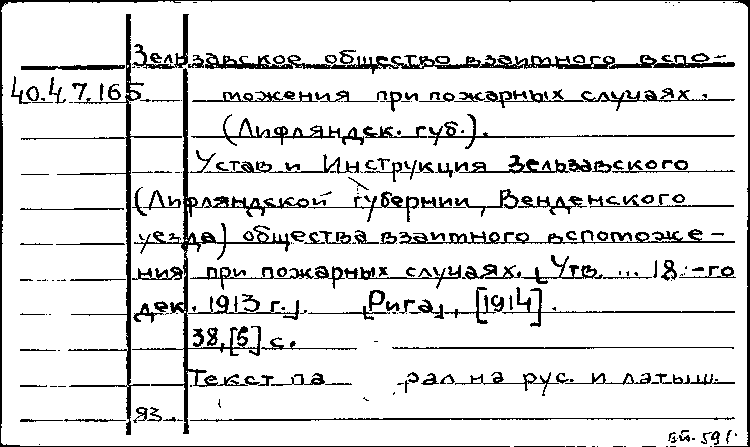 Зельзавское общество взаимного вспо-
40.4.7.165. можения при пожарных случаях.
(Лифляндск. губ.).
Устав и Инструкция Зельзавского
(Лифляндской губернии, Венденского
уезда) общества взаимного вспоможе-
ния при пожарных случаях. [Утв. ... 18-го
дек. 1913 г.]. [Рига], [1914].
38,[6] с.
Текст па рал на рус. и латыш.
яз.